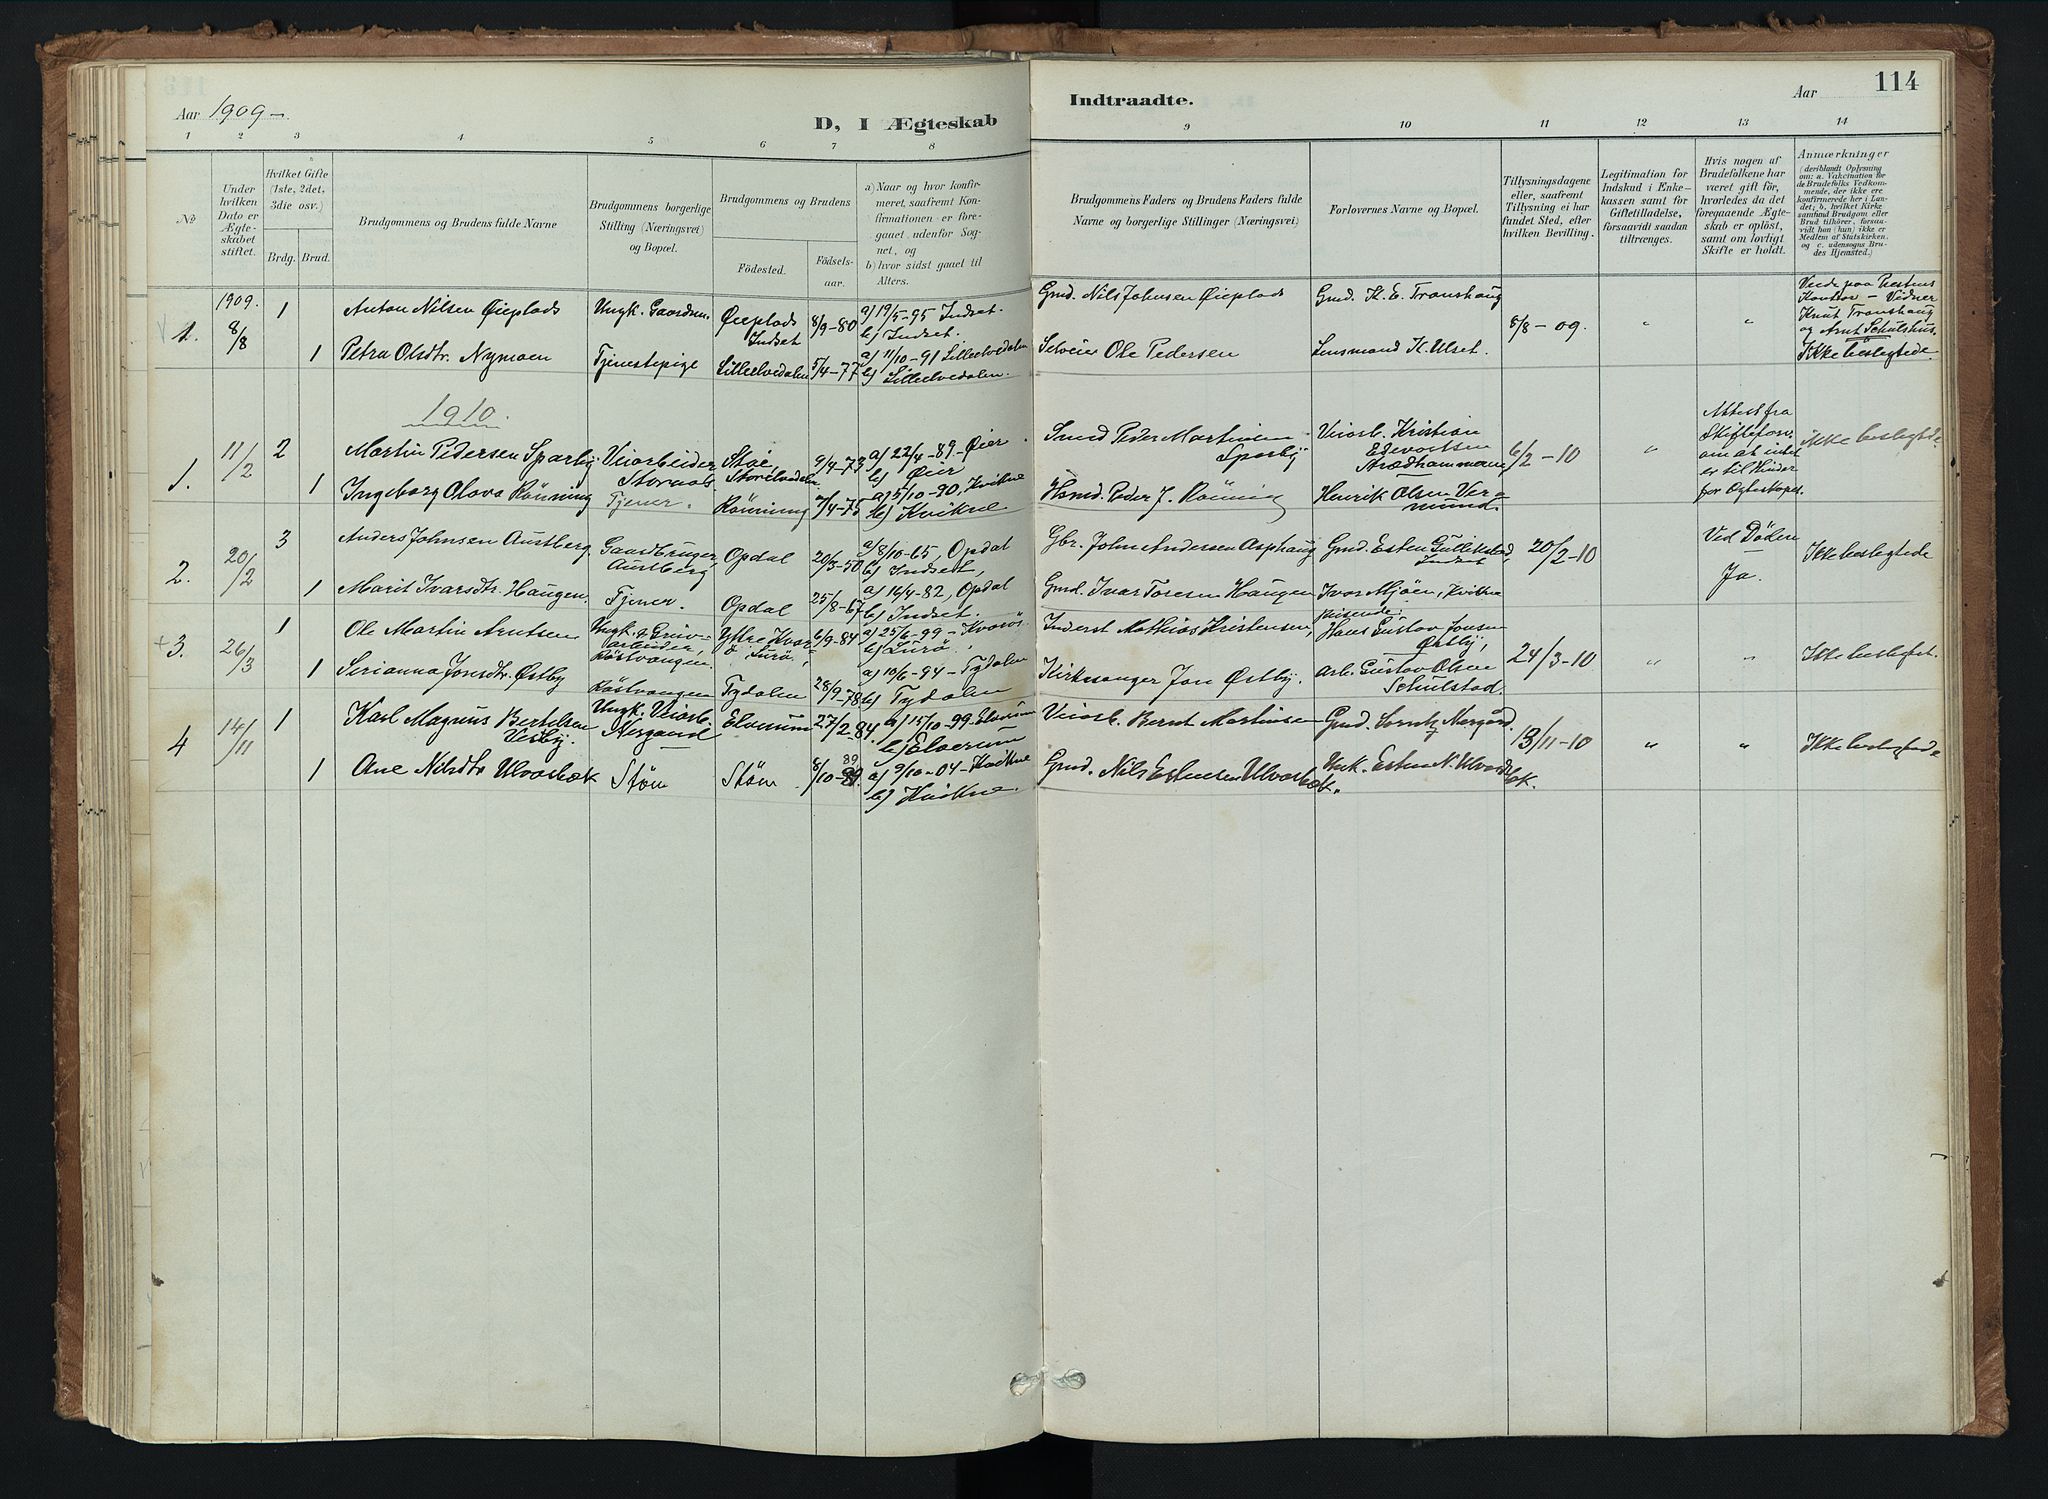 114
Aar 1909 –
D, I Ægteskab
Indtraadte.
Aar
1 2 3 4 5 6 7 8 9 10 11 12 13 14
No
Under hvilken Dato er Ægteskabet stiftet.
Hvilket Gifte (1ste, 2det, 3die osv.)
Brdg. Brud.
Brudgommens og Brudens fulde Navne
Brudgommens borgerlige Stilling (Næringsvei) og Bopæl.
Brudgommens og Brudens
Födested.
Födsels-aar.
a) Naar og hvor konfirmeret, saafremt Konfirmationen er foregaaet udenfor Sognet, og
b) hvor sidst gaaet til Alters.
Brudgommens Faders og Brudens Faders fulde Navne og borgerlige Stillinger (Næringsvei)
Forlovernes Navne og Bopæl.
Tillysningsdagene eller, saafremt Tillysning ei har fundet Sted, efter hvilken Bevilling.
Legitimation for Indskud i Enkekassen samt for Giftetilladelse, forsaavidt saadan tiltrænges.
Hvis nogen af Brudefolkene har været gift för, hvorledes da det foregaaende Ægteskab er oplöst, samt om lovligt Skifte er holdt.
Anmærkninger
(deriblandt Oplysning om: a. Vakcination for de Brudefolks Vedkommende, der ikke ere konfirmerede her i Landet, b. hvilket Kirkesamfund Brudgom eller Brud tilhörer, forsaavidt han (hun) ikke er Medlem af Statskirken, og c. udensogns Brudes Hjemsted.)
1909.
1. 8/8 1 Anton Nilsen Øieplads Ungk. Gaardsm. Øieplads Indset 8/9-80 a) 19/5-95 Indset. b) Indset. Gmd. Nils Johnsen Øieplads Gmd. K. E. Tronshaug 8/8 – 09. " "
Viede paa Prestens Kontor – Vidner Knut Tronshaug og Arnt Schulshus. Ikke beslegtede.
1 Petra Olsdtr. Nymoen Tjenestepige Lilleelvedalen 5/4-77 a) 11/10-91 Lilleelvedalen b) Lilleelvedalen. Selveier Ole Pedersen Lensmand K. Ulset.
1910.
1. 11/2 2 Martin Pedersen Sparby Veiarbeider Stai, Storelvedalen 9/4-73 a) 22/4-89 – Øier. b) Øier Smed Peder Martinsen Sparby Veiarb. Kristian 6/2-10 "
Attest fra Skifteforv. om at intet er til Hinder for Ægteskapet.
Ikke beslegtede
1 Ingeborg Olava Rönning Tjener. Rönning 7/4-75 a) 5/10-90, Kvikne b) Kvikne Hsmd. Peder J. Rönning Henrik Olsen Vermund.
2. 20/2 3 Anders Johnsen Austberg. Gaardbruger, Austberg, Opdal 20/3-50 a) 8/10-65, Opdal b) Indset, Gbr. John Andersen Asphaug Gmd. Esten Gullikstad, Indset 20/2-10 Ved Döden – Ja. Ikke beslegtede
1 Marit Ivarsdtr. Haugen. Tjener. Opdal 25/8-67 a) 16/4-82, Opdal b) Indset. Gmd. Ivar Toresen Haugen Ivar Mjöen, Kvikne
+3. 26/3 1 Ole Martin Arntsen Ungk. & Gruvearbeider, Röstvangen. Lurö, 6/9-84 a) 25/6-99 – b) Lurö, Inderst Mathias Kristensen, Reisende: Hans Gustav Jonsen Østby, 24/3-10 " " Ikke beslegtet.
1 Serianna Jonsdtr. Østby Röstvangen Tydalen 28/9-78 a) 10/6-94 – Tydalen b) Tydalen Kirkesanger Jon Østby. Arb. Gustav Olsen Schulstad.
4 14/11 1 Karl Magnus Bertelsen Vesby. Ungk. Veiarb. Nergaard Elverum 27/2-84. a) 15/10-99 – Elverum b) Elverum Veiarb. Bernt Martinsen Gmd. Nergård. 13/11-10 " " Ikke beslegtede
1 Ane Nilsdtr Ulvasbæk Stöm Stöm 8/10-89. a) 9/10-04 – Kvikne b) Kvikne. Gmd. Nils Estensen Ulvasbæk. Ungk. Esten N. Ulvasbæk.